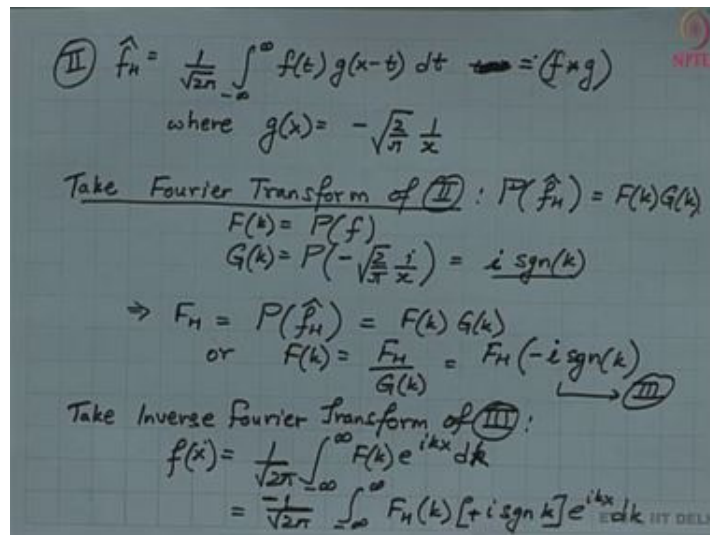 NPTEL
(II) f̂_H = 1/√2π ∫_{-∞}^{∞} f(t) g(x-t) dt = (f*g)
where g(x) = -√(2/π) 1/x
Take Fourier Transform of (II) : P(f̂_H) = F(k)G(k)
F(k) = P(f)
G(k) = P(-√(2/π) 1/x) = i sgn(k)
⇒ F_H = P(f̂_H) = F(k) G(k)
or F(k) = F_H/G(k) = F_H (-i sgn(k)
→ (III)
Take Inverse Fourier Transform of (III) :
f(x) = 1/√2π ∫_{-∞}^{∞} F(k) e^{ikx} dk
= -1/√2π ∫_{-∞}^{∞} F_H(k) [+i sgn k] e^{ikx} dk
IIT DEL